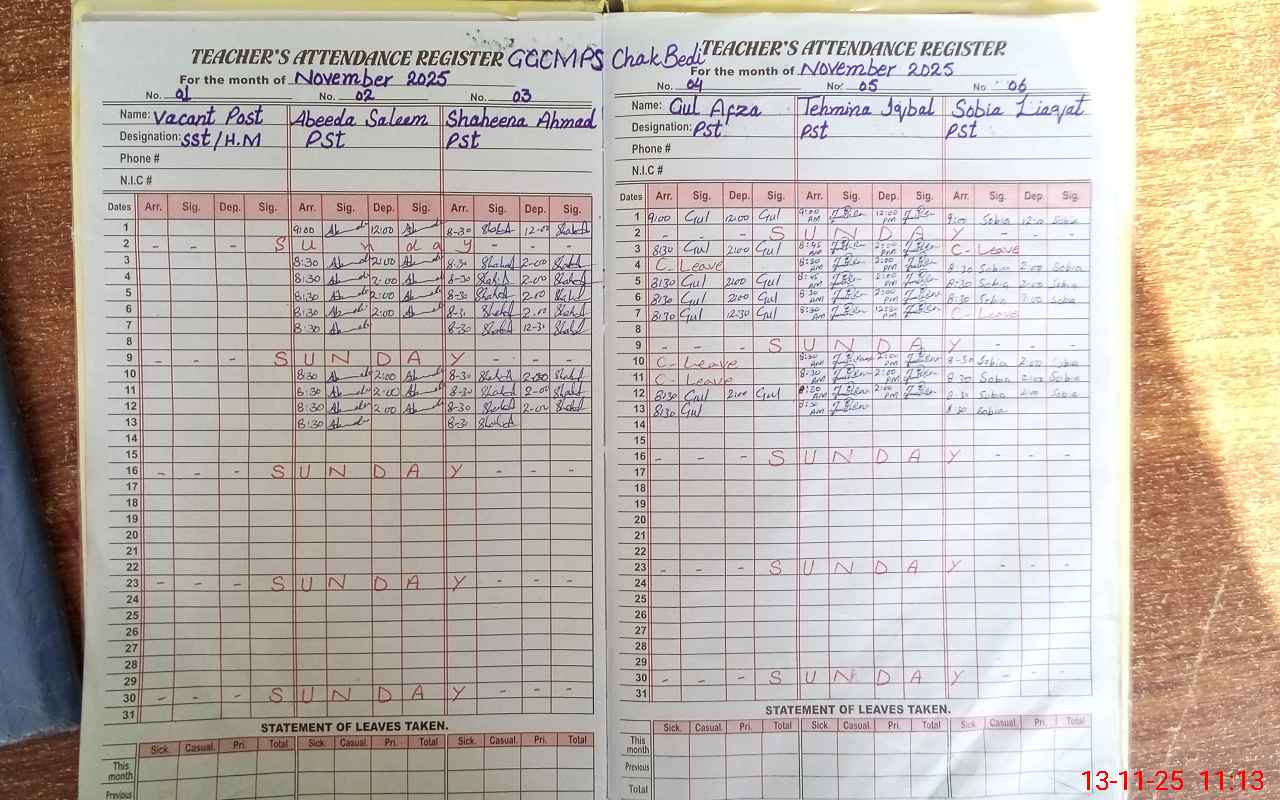 TEACHER'S ATTENDANCE REGISTER GGCMPS Chak Bedi
For the month of November 2025
No. 01 No. 02 No. 03
Name: Vacant Post Abeeda Saleem Shaheena Ahmad
Designation: SST/H.M PST PST
Phone #
N.I.C #
Dates Arr. Sig. Dep. Sig. Arr. Sig. Dep. Sig. Arr. Sig. Dep. Sig.
1 9:00 12:00 8-30 12-00
2 - - - S u n d a y - - -
3 8:30 2:00 8-30 2-00
4 8:30 2:00 8-30 2-00
5 8:30 2:00 8-30 2-00
6 8:30 2:00 8-30 2-00
7 8:30 8-30 12-30
8
9 - - - S U N D A Y - - -
10 8:30 2:00 8-30 2-00
11 8:30 2:00 8-30 2-00
12 8:30 2:00 8-30 2-00
13 8:30 8-30
14
15
16 - - - S U N D A Y - - -
17
18
19
20
21
22
23 - - - S U N D A Y - - -
24
25
26
27
28
29
30 - - - S U N D A Y - - -
31
STATEMENT OF LEAVES TAKEN.
Sick. Casual. Pri. Total Sick. Casual. Pri. Total Sick. Casual. Pri. Total
This month
Previous
TEACHER'S ATTENDANCE REGISTER
For the month of November 2025
No. 04 No. 05 No. 06
Name: Gul Afza Tehmina Iqbal Sobia Liaqat
Designation: PST PST PST
Phone #
N.I.C #
Dates Arr. Sig. Dep. Sig. Arr. Sig. Dep. Sig. Arr. Sig. Dep. Sig.
1 9:00 Gul 12:00 Gul 9:00 AM 12:00 PM 9:00 Sobia 12:00 Sobia
2 - - - S U N D A Y - - -
3 8:30 Gul 2:00 Gul 8:45 AM 2:00 PM C-Leave
4 C-Leave 8:30 AM 2:00 PM 8:30 Sobia 2:00 Sobia
5 8:30 Gul 2:00 Gul 8:45 AM 2:00 PM 8:30 Sobia 2:00 Sobia
6 8:30 Gul 2:00 Gul 8:30 AM 2:00 PM 8:30 Sobia 2:00 Sobia
7 8:30 Gul 12:30 Gul 8:30 AM 12:30 PM C-Leave
8
9 - - - S U N D A Y - - -
10 C-Leave 8:30 AM 2:00 PM 8-30 Sobia 2:00 Sobia
11 C-Leave 8:30 AM 2:00 PM 8:30 Sobia 2:00 Sobia
12 8:30 Gul 2:00 Gul 8:30 AM 2:00 PM 8:30 Sobia 2:00 Sobia
13 8:30 Gul 8:30 AM 8:30 Sobia
14
15
16 - - - S U N D A Y - - -
17
18
19
20
21
22
23 - - - S U N D A Y - - -
24
25
26
27
28
29
30 - - - S U N D A Y - - -
31
STATEMENT OF LEAVES TAKEN.
Sick. Casual. Pri. Total Sick. Casual. Pri. Total Sick. Casual. Pri. Total
This month
Previous
Total
13-11-25 11:13